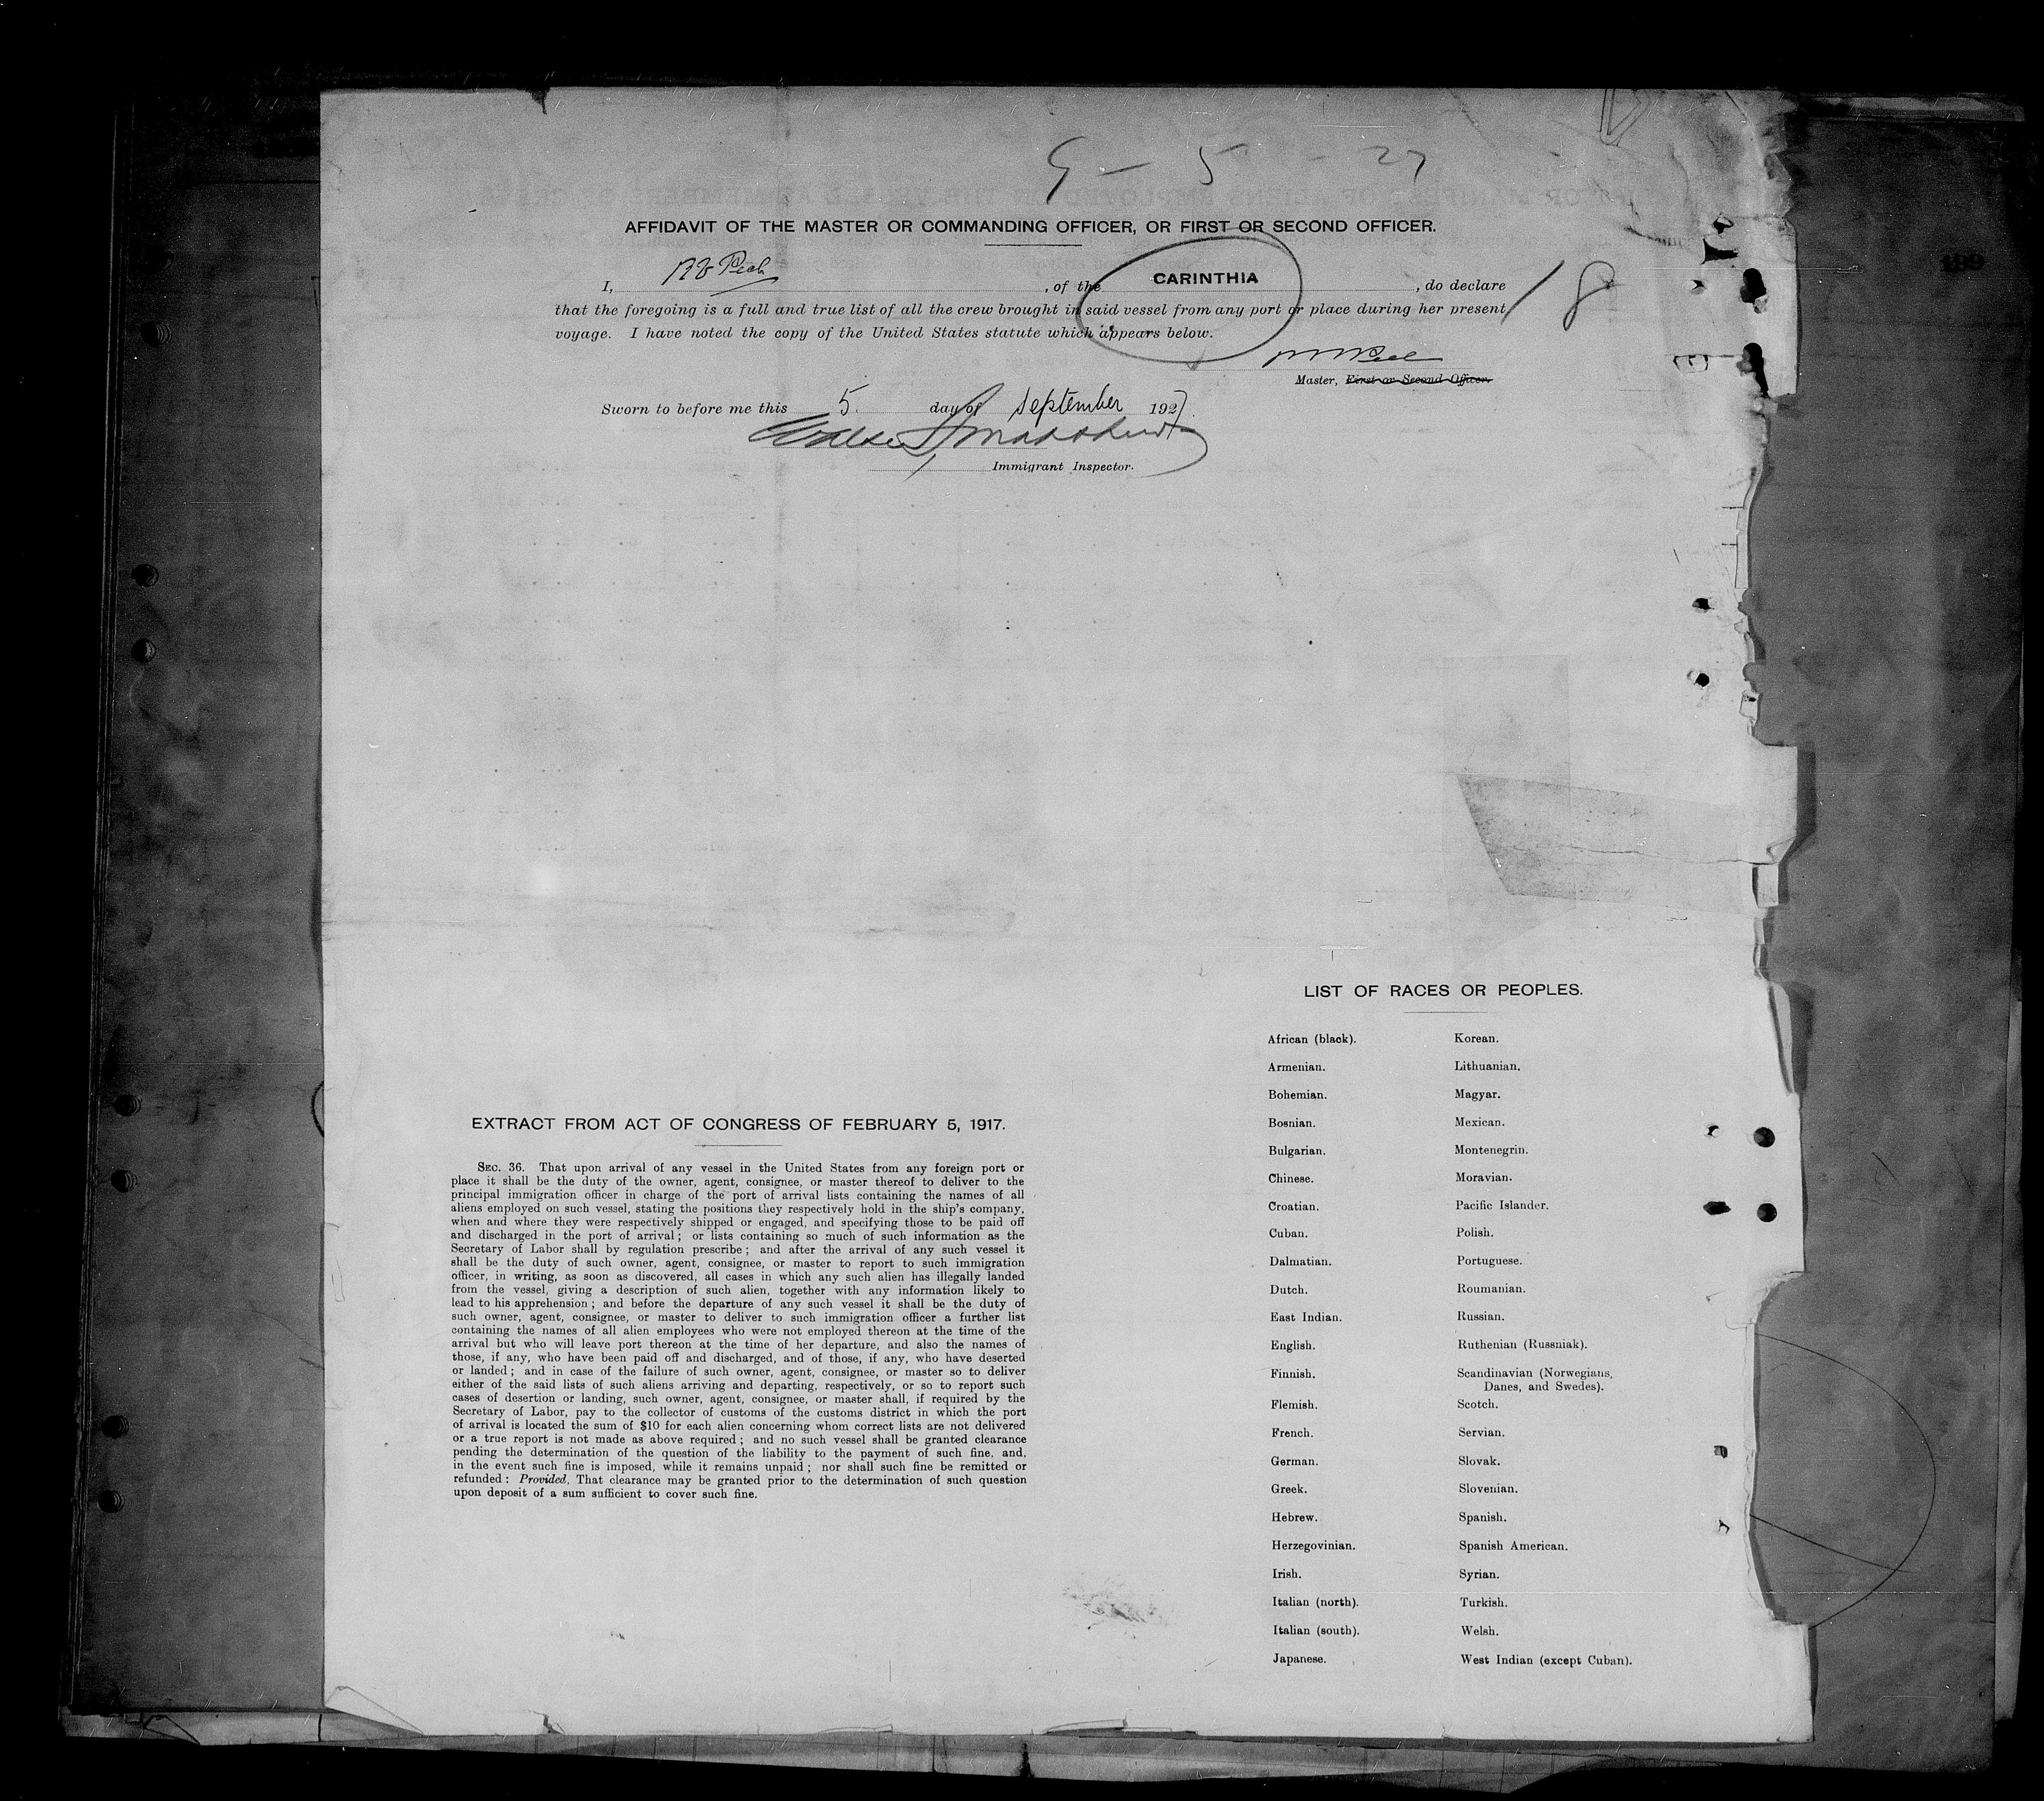 9 - 5 - 27
AFFIDAVIT OF THE MASTER OR COMMANDING OFFICER, OR FIRST OR SECOND OFFICER.
I, , of the CARINTHIA , do declare
that the foregoing is a full and true list of all the crew brought in said vessel from any port or place during her present
voyage. I have noted the copy of the United States statute which appears below.
18
Master, First or Second Officer.
Sworn to before me this 5 day of September 1927.
Immigrant Inspector.
199
EXTRACT FROM ACT OF CONGRESS OF FEBRUARY 5, 1917.
SEC. 36. That upon arrival of any vessel in the United States from any foreign port or
place it shall be the duty of the owner, agent, consignee, or master thereof to deliver to the
principal immigration officer in charge of the port of arrival lists containing the names of all
aliens employed on such vessel, stating the positions they respectively hold in the ship's company,
when and where they were respectively shipped or engaged, and specifying those to be paid off
and discharged in the port of arrival; or lists containing so much of such information as the
Secretary of Labor shall by regulation prescribe; and after the arrival of any such vessel it
shall be the duty of such owner, agent, consignee, or master to report to such immigration
officer, in writing, as soon as discovered, all cases in which any such alien has illegally landed
from the vessel, giving a description of such alien, together with any information likely to
lead to his apprehension; and before the departure of any such vessel it shall be the duty of
such owner, agent, consignee, or master to deliver to such immigration officer a further list
containing the names of all alien employees who were not employed thereon at the time of the
arrival but who will leave port thereon at the time of her departure, and also the names of
those, if any, who have been paid off and discharged, and of those, if any, who have deserted
or landed; and in case of the failure of such owner, agent, consignee, or master so to deliver
either of the said lists of such aliens arriving and departing, respectively, or so to report such
cases of desertion or landing, such owner, agent, consignee, or master shall, if required by the
Secretary of Labor, pay to the collector of customs of the customs district in which the port
of arrival is located the sum of $10 for each alien concerning whom correct lists are not delivered
or a true report is not made as above required; and no such vessel shall be granted clearance
pending the determination of the question of the liability to the payment of such fine, and,
in the event such fine is imposed, while it remains unpaid; nor shall such fine be remitted or
refunded: Provided, That clearance may be granted prior to the determination of such question
upon deposit of a sum sufficient to cover such fine.
LIST OF RACES OR PEOPLES.
African (black).
Armenian.
Bohemian.
Bosnian.
Bulgarian.
Chinese.
Croatian.
Cuban.
Dalmatian.
Dutch.
East Indian.
English.
Finnish.
Flemish.
French.
German.
Greek.
Hebrew.
Herzegovinian.
Irish.
Italian (north).
Italian (south).
Japanese.
Korean.
Lithuanian.
Magyar.
Mexican.
Montenegrin.
Moravian.
Pacific Islander.
Polish.
Portuguese.
Roumanian.
Russian.
Ruthenian (Russniak).
Scandinavian (Norwegians,
Danes, and Swedes).
Scotch.
Servian.
Slovak.
Slovenian.
Spanish.
Spanish American.
Syrian.
Turkish.
Welsh.
West Indian (except Cuban).